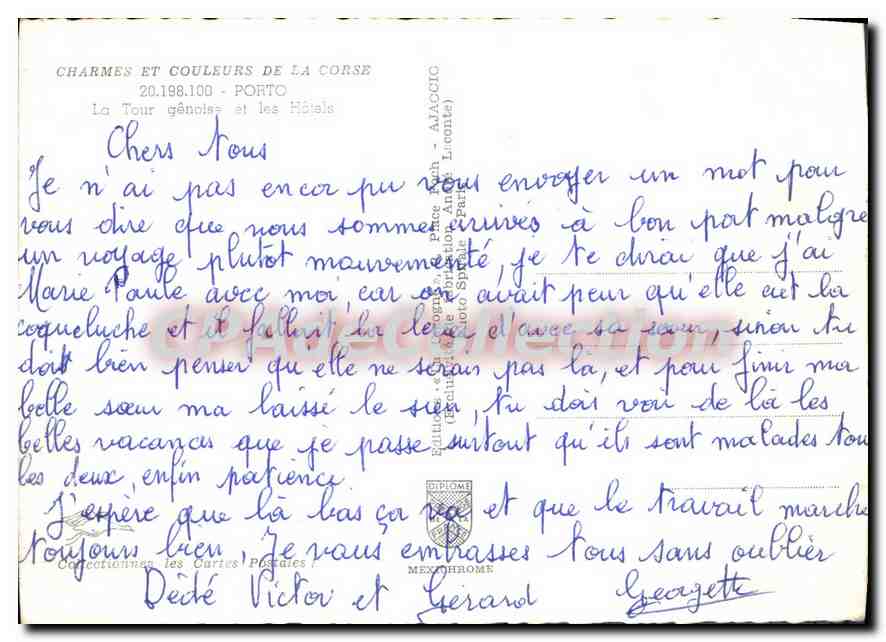 CHARMES ET COULEURS DE LA CORSE
20.198.100 - PORTO
La Tour gênoise et les Hôtels
Chers Tous
Je n'ai pas encor pu vous envoyer un mot pour
vous dire que nous sommes arrivés à bon port malgré
un voyage plutôt mouvementé, je te dirai que j'ai
Marie Paule avec moi, car on avait peur qu'elle ait la
coqueluche et il fallait la d'avec sa sœur, sinon tu
doit bien penser qu'elle ne serais pas là, et pour finir ma
belle sœur ma laissé le sien, tu dois voir de là les
belles vacances que je passe surtout qu'ils sont malades tou
les deux, enfin patience
J'espère que là bas ça va et que le travail marche
toujours bien, Je vous embrasses tous sans oublier
Dédé Victor et Gérard Georgette
Editions Place Foch - AJACCIO
(Exclusivité de fabrication André Leconte)
Photo Spirale - Paris
DIPLOME
MEXICHROME
Collectionnez les Cartes Postales !
CPAdeCollection